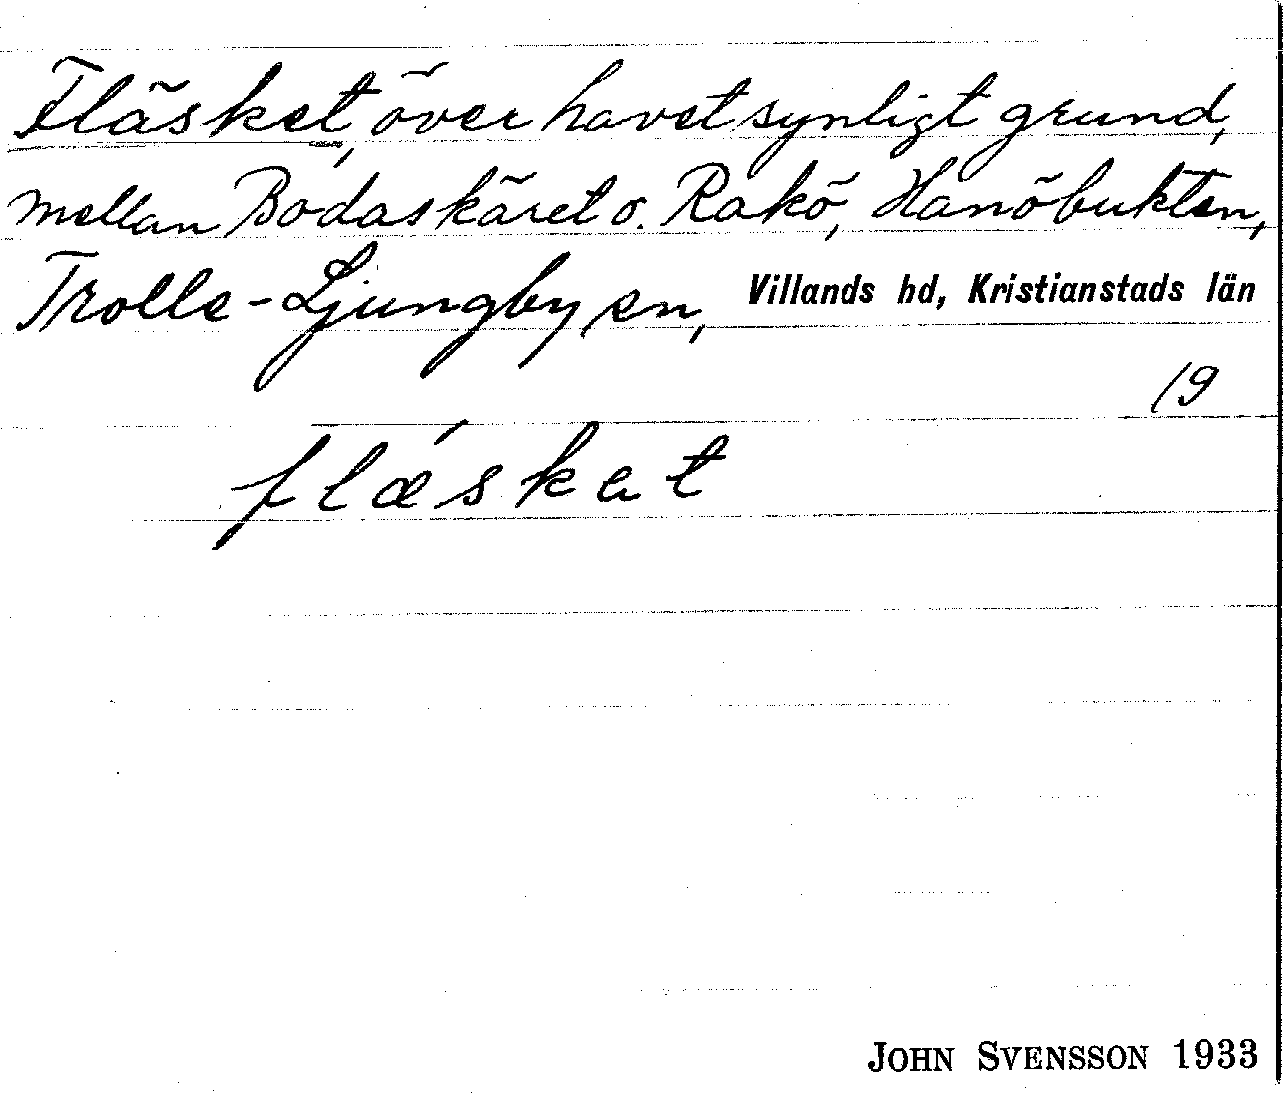 Fläsket, över havet synligt grund,
mellan Bodaskäret o. Rakö, Hanöbukten,
Trolle-Ljungby sn, Villands hd, Kristianstads län
19
flǽskat
JOHN SVENSSON 1933